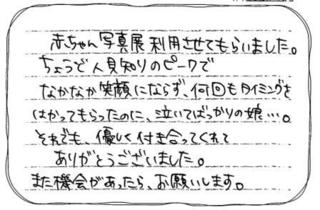 赤ちゃん写真展利用させてもらいました。
ちょうど人見知りのピークで
なかなか笑顔にならず、何回もタイミングを
はかってもらったのに、泣いてばっかりの娘…。
それでも、優しく付き合ってくれて
ありがとうございました。
また機会があったら、お願いします。